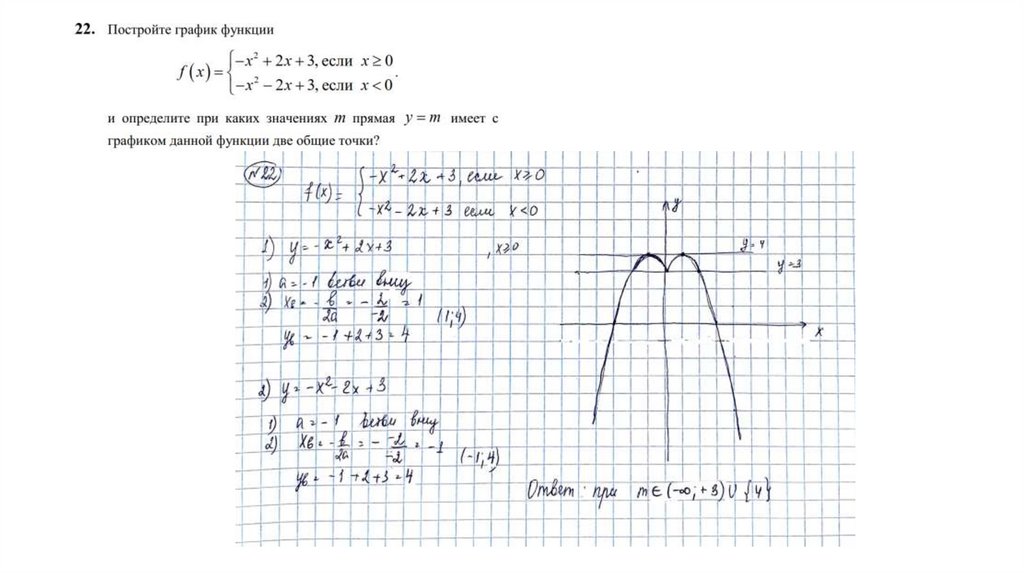 22. Постройте график функции
f(x) = { −x² + 2x + 3, если x ≥ 0
−x² − 2x + 3, если x < 0 .
и определите при каких значениях m прямая y = m имеет с
графиком данной функции две общие точки?
№22
f(x) = { −x² + 2x + 3, если x ≥ 0
−x² − 2x + 3 если x < 0
1) y = −x² + 2x + 3 , x ≥ 0
1) a = −1 ветви вниз
2) xв = −в/2a = −2/−2 = 1 (1; 4)
yв = −1 + 2 + 3 = 4
2) y = −x² − 2x + 3
1) a = −1 ветви вниз
2) xв = −в/2a = − −2/−2 = −1 (−1; 4)
yв = −1 + 2 + 3 = 4
y
y = 4
y = 3
x
Ответ: при m ∈ (−∞; +3) ∪ {4}